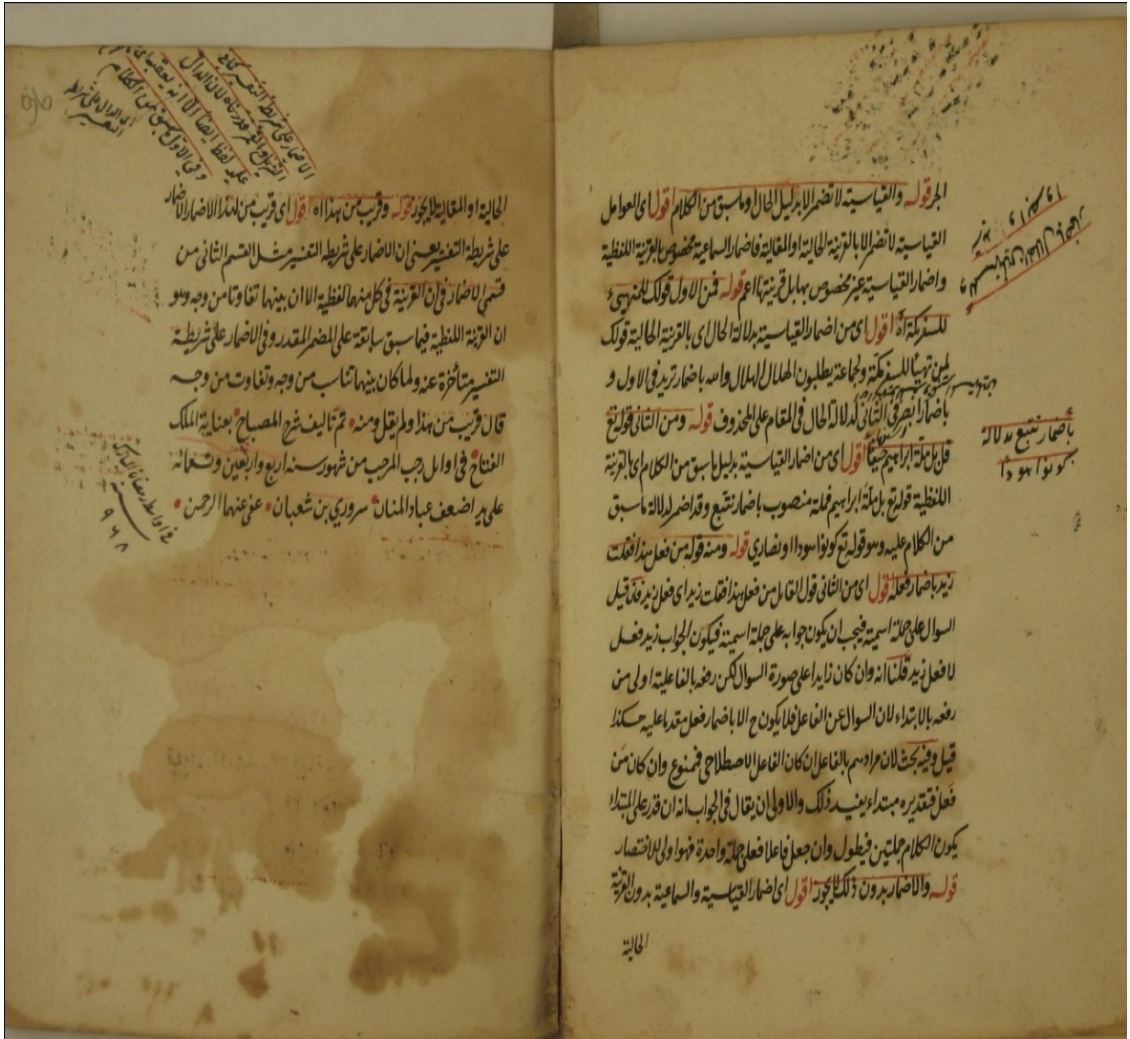 الجر قوله والقياسية لا تضمر الا بدليل الحال او ما سبق من الكلام اقول اى العوامل
القياسية لا تضمر الا بالقرينة الحالية او المقالية فاضمار السماعية مخصوص بالقرينة اللفظية
واضمار القياسية غير مخصوص بها بل قرينتها اعم قوله فمن الاول قولك للمتهيئ
للسفر مكة اه اقول اى من اضمار القياسية بدلالة الحال اى بالقرينة الحالية قولك
لمن تهيأ للسفر مكة ولجماعة يطلبون الهلال الهلال والله باضمار تريد فى الاول و
باضمار ابصر فى الثانى لدلالة الحال فى المقام على المحذوف قوله ومن الثانى قوله تع
قل بل ملة ابراهيم حنيفا اقول اى من اضمار القياسية بدليل ما سبق من الكلام اى بالقرينة
اللفظية قوله تع بل ملة ابراهيم فملة منصوب باضمار نتبع وقد اضمر لدلالة ما سبق
من الكلام عليه وهو قوله تع كونوا هودا او نصارى قوله ومنه قوله من فعل هذا فقلت
زيد باضمار فعله اقول اى من الثانى قول القايل من فعل هذا فقلت زيد اى فعل زيد فان قيل
السوال على جملة اسمية فيجب ان يكون جوابه على جملة اسمية فيكون الجواب زيد فعل
لا فعل زيد قلنا انه وان كان زايدا على صورة السوال لكن رفعه بالفاعلية اولى من
رفعه بالابتداء لان السوال عن الفاعل فلا يكون ح الا باضمار فعل مقدما عليه هكذا
قيل وفيه بحث لان مرادهم بالفاعل ان كان الفاعل الاصطلاحى فممنوع وان كان من
فعل فتقديره مبتداء يفيد ذلك والاولى ان يقال فى الجواب انه ان قدر على المبتداء
يكون الكلام جملتين فيطول وان جعل فاعلا فعلى جملة واحدة فهو اولى للاختصار
قوله والاضمار بدون ذلك لا يجوز اقول اى اضمار القياسية والسماعية بدون القرينة
الحالية
باضمار نتبع بدلالة
كونوا هودا
الاضمار على شريطة التفسير
الحالية او المقالية لا يجوز قوله وقريب من هذا اه اقول اى قريب من هذا الاضمار الاضمار
على شريطة التفسير يعنى ان الاضمار على شريطة التفسير مثل القسم الثانى من
قسمى الاضمار فى ان القرينة فى كل منهما لفظية الا ان بينهما تفاوتا من وجه وهو
ان القرينة اللفظية فيما سبق سابقة على المضمر المقدر وفى الاضمار على شريطة
التفسير متأخرة عنه ولما كان بينهما تناسب من وجه وتفاوت من وجه
قال قريب من هذا ولم يقل ومنه تم تاليف شرح المصباح بعناية الملك
الفتاح فى اوايل رجب المرجب من شهور سنه اربع واربعين وتسعمائه
على يد اضعف عباد المنان سرورى بن شعبان عفى عنهما الرحمن
٩٦٨